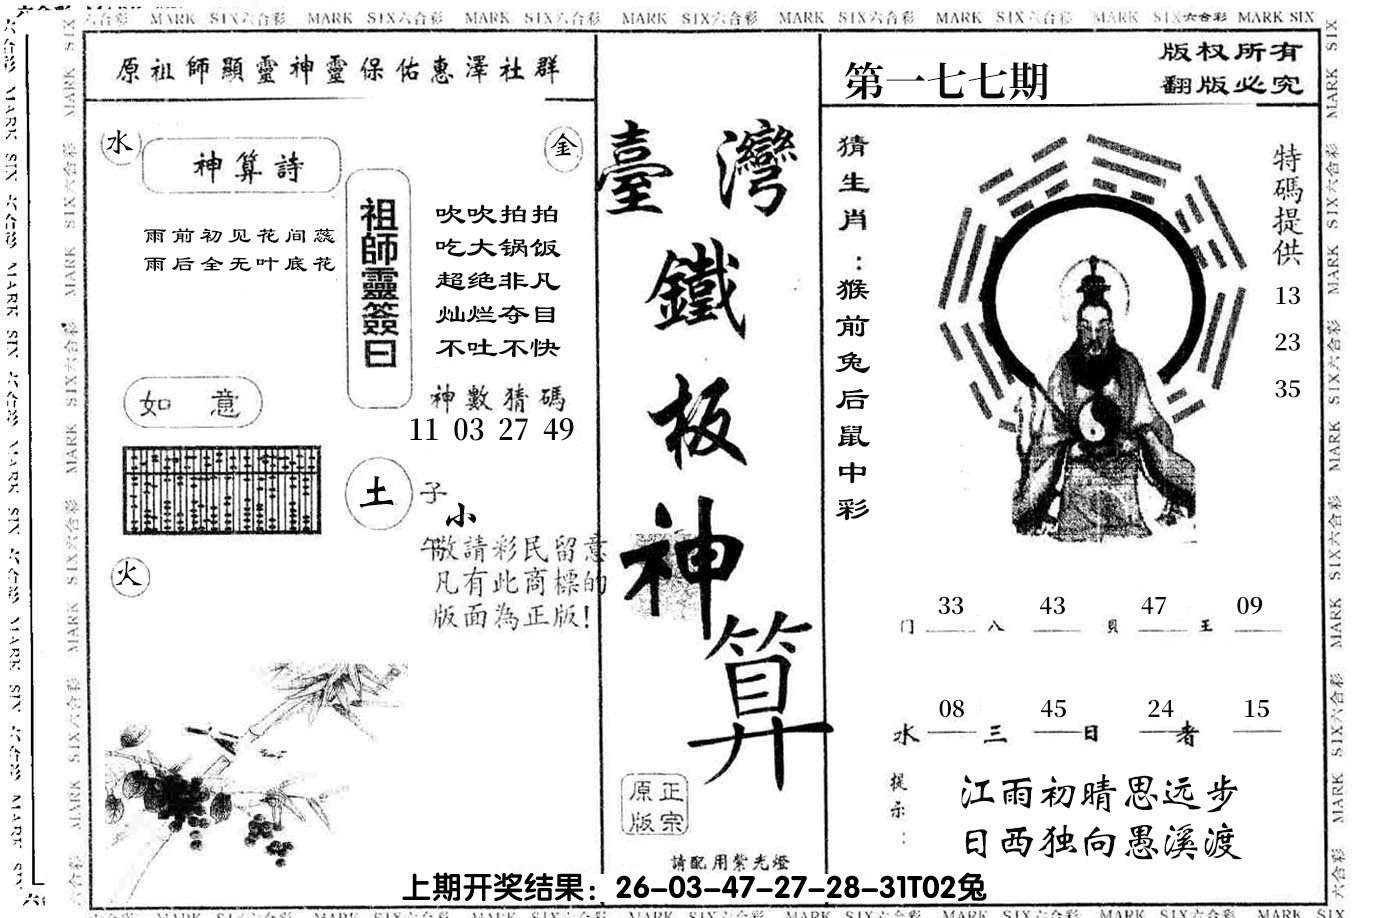 MARK SIX六合彩 MARK SIX六合彩 MARK SIX六合彩 MARK SIX六合彩 MARK SIX六合彩 MARK SIX六合彩 MARK SIX六合彩 MARK SIX
原祖師顯靈神靈保佑惠澤社群
水
神算詩
金
雨前初见花间蕊
雨后全无叶底花
祖師靈簽曰
吹吹拍拍
吃大锅饭
超绝非凡
灿烂夺目
不吐不快
如 意
神數猜碼
11 03 27 49
土
子
小
午
敬請彩民留意
凡有此商標的
版面為正版!
火
臺灣
鐵
板
神
算
正宗
原版
請配用紫光燈
第一七七期
版权所有
翻版必究
猜生肖:猴前兔后鼠中彩
特碼提供
13
23
35
33 43 47 09
门 八 貝 王
08 45 24 15
水 三 日 者
提示:
江雨初晴思远步
日西独向愚溪渡
上期开奖结果：26-03-47-27-28-31T02兔